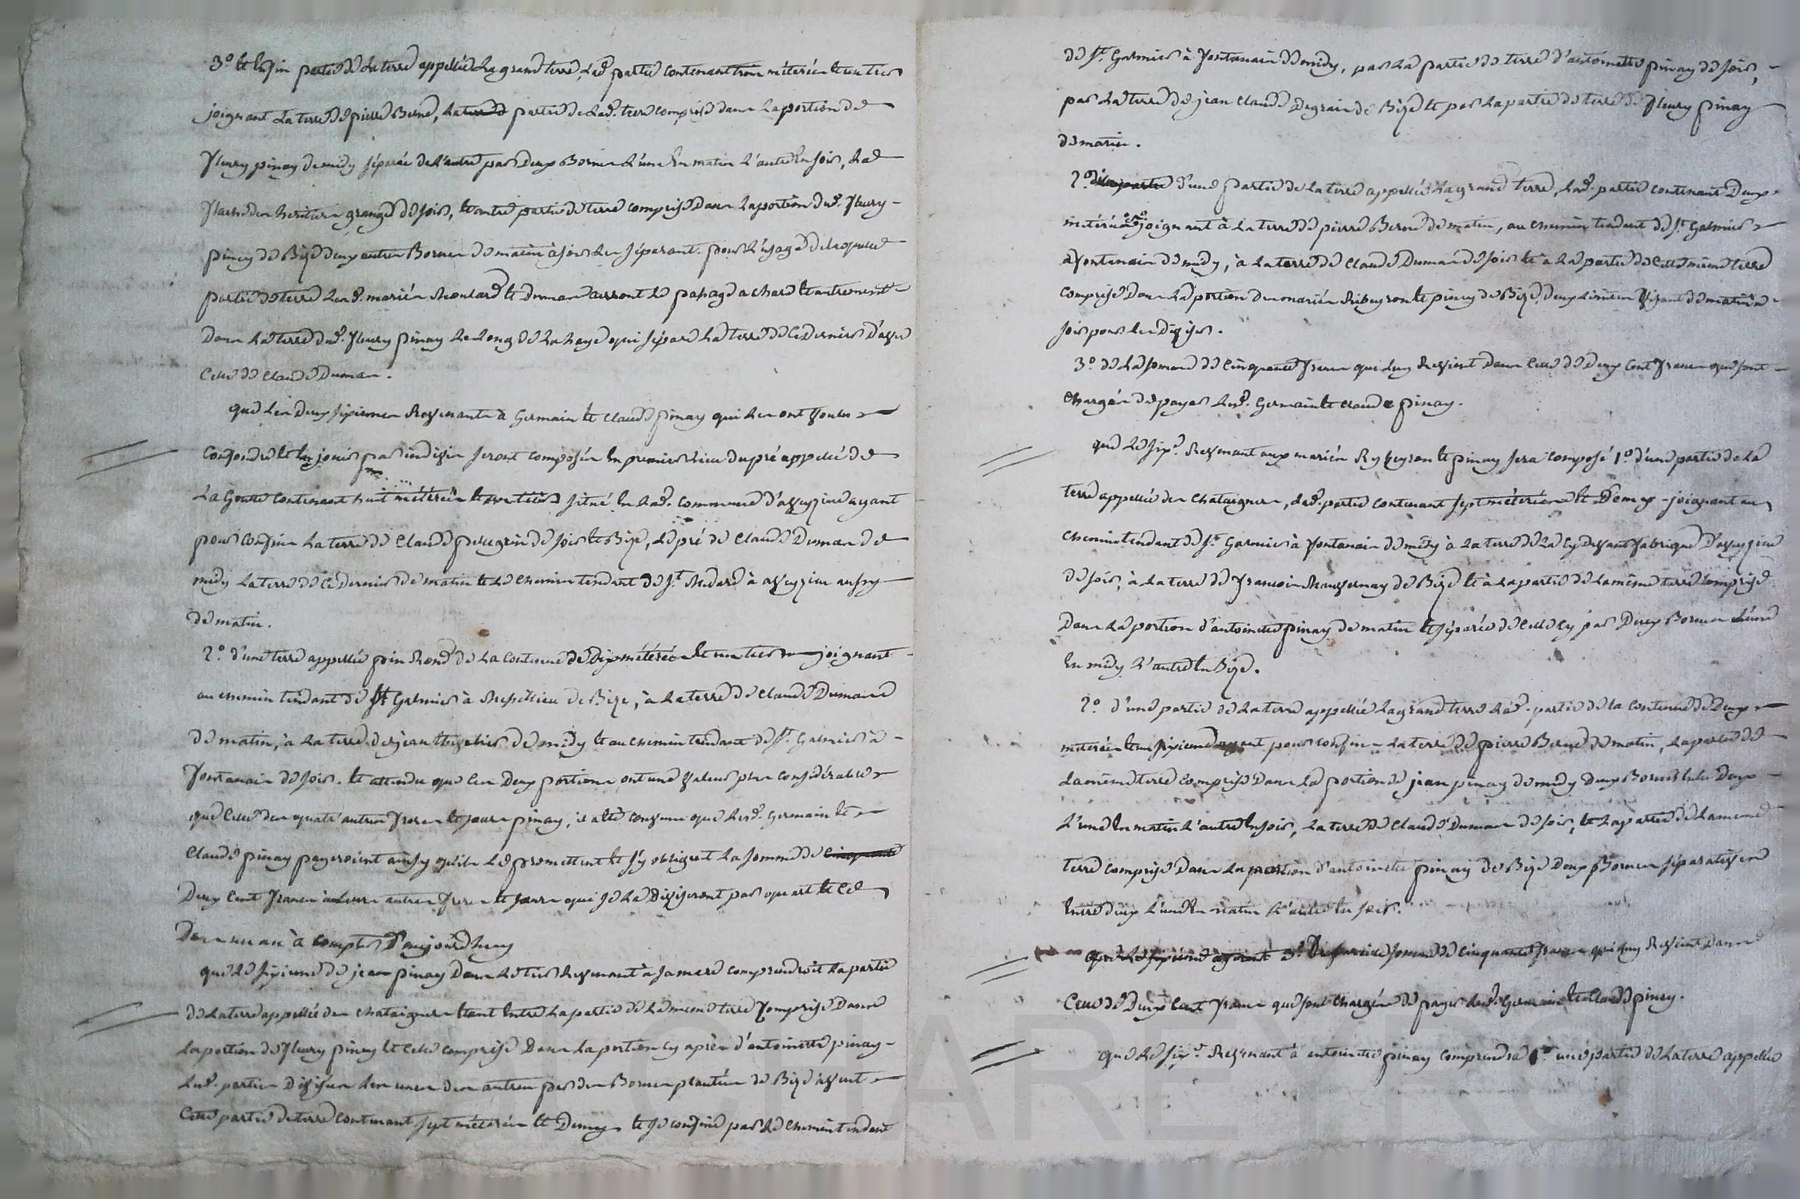 3.° et Enfin partie de la terre appellée La grand terre, lad. partie contenant trois métérées et un tiers
joignant La terre de pierre Berne, La partie de lad. terre comprise dans La portion de
fleury pinay de midy séparée de l'autre par deux Bornes L'une En matin L'autre En soir, La
des heritiers granges de soir, et autre partie de terre comprise dans La portion dud. fleury
pinay de Bize deux autres Bornes de matin à soir Les séparant. pour L'usage de laquelle
partie de terre Les d. mariés et Dumas auront Le passage a char et autrement
Dans La terre dud. fleury pinay Le Long de La haye qui sépare La terre de ce Dernier D'avec
Celle de Claude Dumas.
que Les Deux sixiemes Revenants à Germain et Claude pinay qui Les ont voulu
Confondre et En jouir par indivis seront composés En premier Lieu du pré appellé de
La Goutte contenant huit métérées et un tiers situé En Lad. commune d'aveyzieu ayant
pour confin La terre de Claude pelegrin de soir et Bize, Le pré de Claude Dumas de
midy La terre de ce Dernier de matin et Le chemin tendant de St. Medard à aveyzieu aussy
de matin.
2.° d'une terre appellée pin Rond de La Contenue de Dix métérées et un tiers joignant
au chemin tendant de St Galmier à Chevrieres de Bize, à La terre de Claude Dumas
de matin, à La terre de jean de midy et au chemin tendant de St. Galmier à
fontanais de soir. Et attendu que Les Deux portions ont une valeur plus considérable
que Celle des quatre autres freres et sœurs pinay, il a été convenu que Lesd. Germain et
Claude pinay payeroient ainsy qu'ils Le promettent et s'y obligent La somme de cinquante
Deux Cent francs à Leurs autres freres et sœurs qui se La Diviseront par quart et Ce
Dans un an à compter D'aujourd'huy
que Le sixieme de jean pinay Dans Le tiers Revenant à sa mere comprendroit La partie
de La terre appellée des chataigners étant Entre La partie de La meme terre Comprise Dans
La portion de fleury pinay et Celle comprise Dans La portion cy après d'antoinette pinay
Lesd. parties Divisées Les unes des autres par des Bornes plantées de Bize à vent
Cette partie de terre contenant sept métérées et Demy et se confine par Le chemin tendant
de St. Galmier à fontanais de midy, par La partie de terre d'antoinette pinay de soir,
par La terre de jean Claude Degrain de Bize et par La partie de terre de fleury pinay
de matin.
2.° d'une partie de La terre appellée La grand terre, Lad. partie contenant Deux
métérées joignant à La terre de pierre Berne de matin, au chemin tendant de St. Galmier
à fontanais de midy, à La terre de Claude Dumas de soir et à La partie de Cette même terre
comprise Dans La portion des mariés Ribeyron et pinay de Bize, deux visant de matin à
soir pour Les Diviser.
3.° de La somme de Cinquante francs qui Luy Revient Dans Celle de Deux Cent francs que sont
Chargés de payer Lesd. Germain et Claude pinay.
que Le six.e Revenant aux mariés Rybeyron et pinay sera Composé 1.° d'une partie de La
terre appellée des chataigners, Lad. partie contenant sept métérées et Demy joignant au
chemin tendant de St. Galmier à fontanais de midy à La terre de La Cy devant fabrique D'aveyzieu
de soir, à La terre de francois de Bize et à La partie de La même terre comprise
Dans La portion d'antoinette pinay de matin et séparée de Celle cy par Deux Bornes L'une
En midy L'autre En Bize.
2.° d'une partie de La terre appellée La grand terre Lad. partie de La contenue de Deux
meterées et un sixieme ayant pour confin La terre de pierre Berne de matin, La partie de
La même terre comprise Dans La portion de jean pinay de midy Deux Bornes Entre Deux
L'une En matin L'autre En soir, La terre de Claude Dumas de soir, et La partie de La meme
terre comprise Dans La portion d'antoinette pinay de Bize Deux Bornes séparatives
Entre Deux L'une En matin L'autre En soir.
que Le sixieme ayant à 3.° De pareille somme de Cinquante francs qui Luy Revient Dans
Celle de Deux Cent francs que sont Chargés de payer Lesd. Germain et Claude pinay.
que Le six.e Revenant à antoinette pinay Comprendra 1.° une partie de La terre appellée